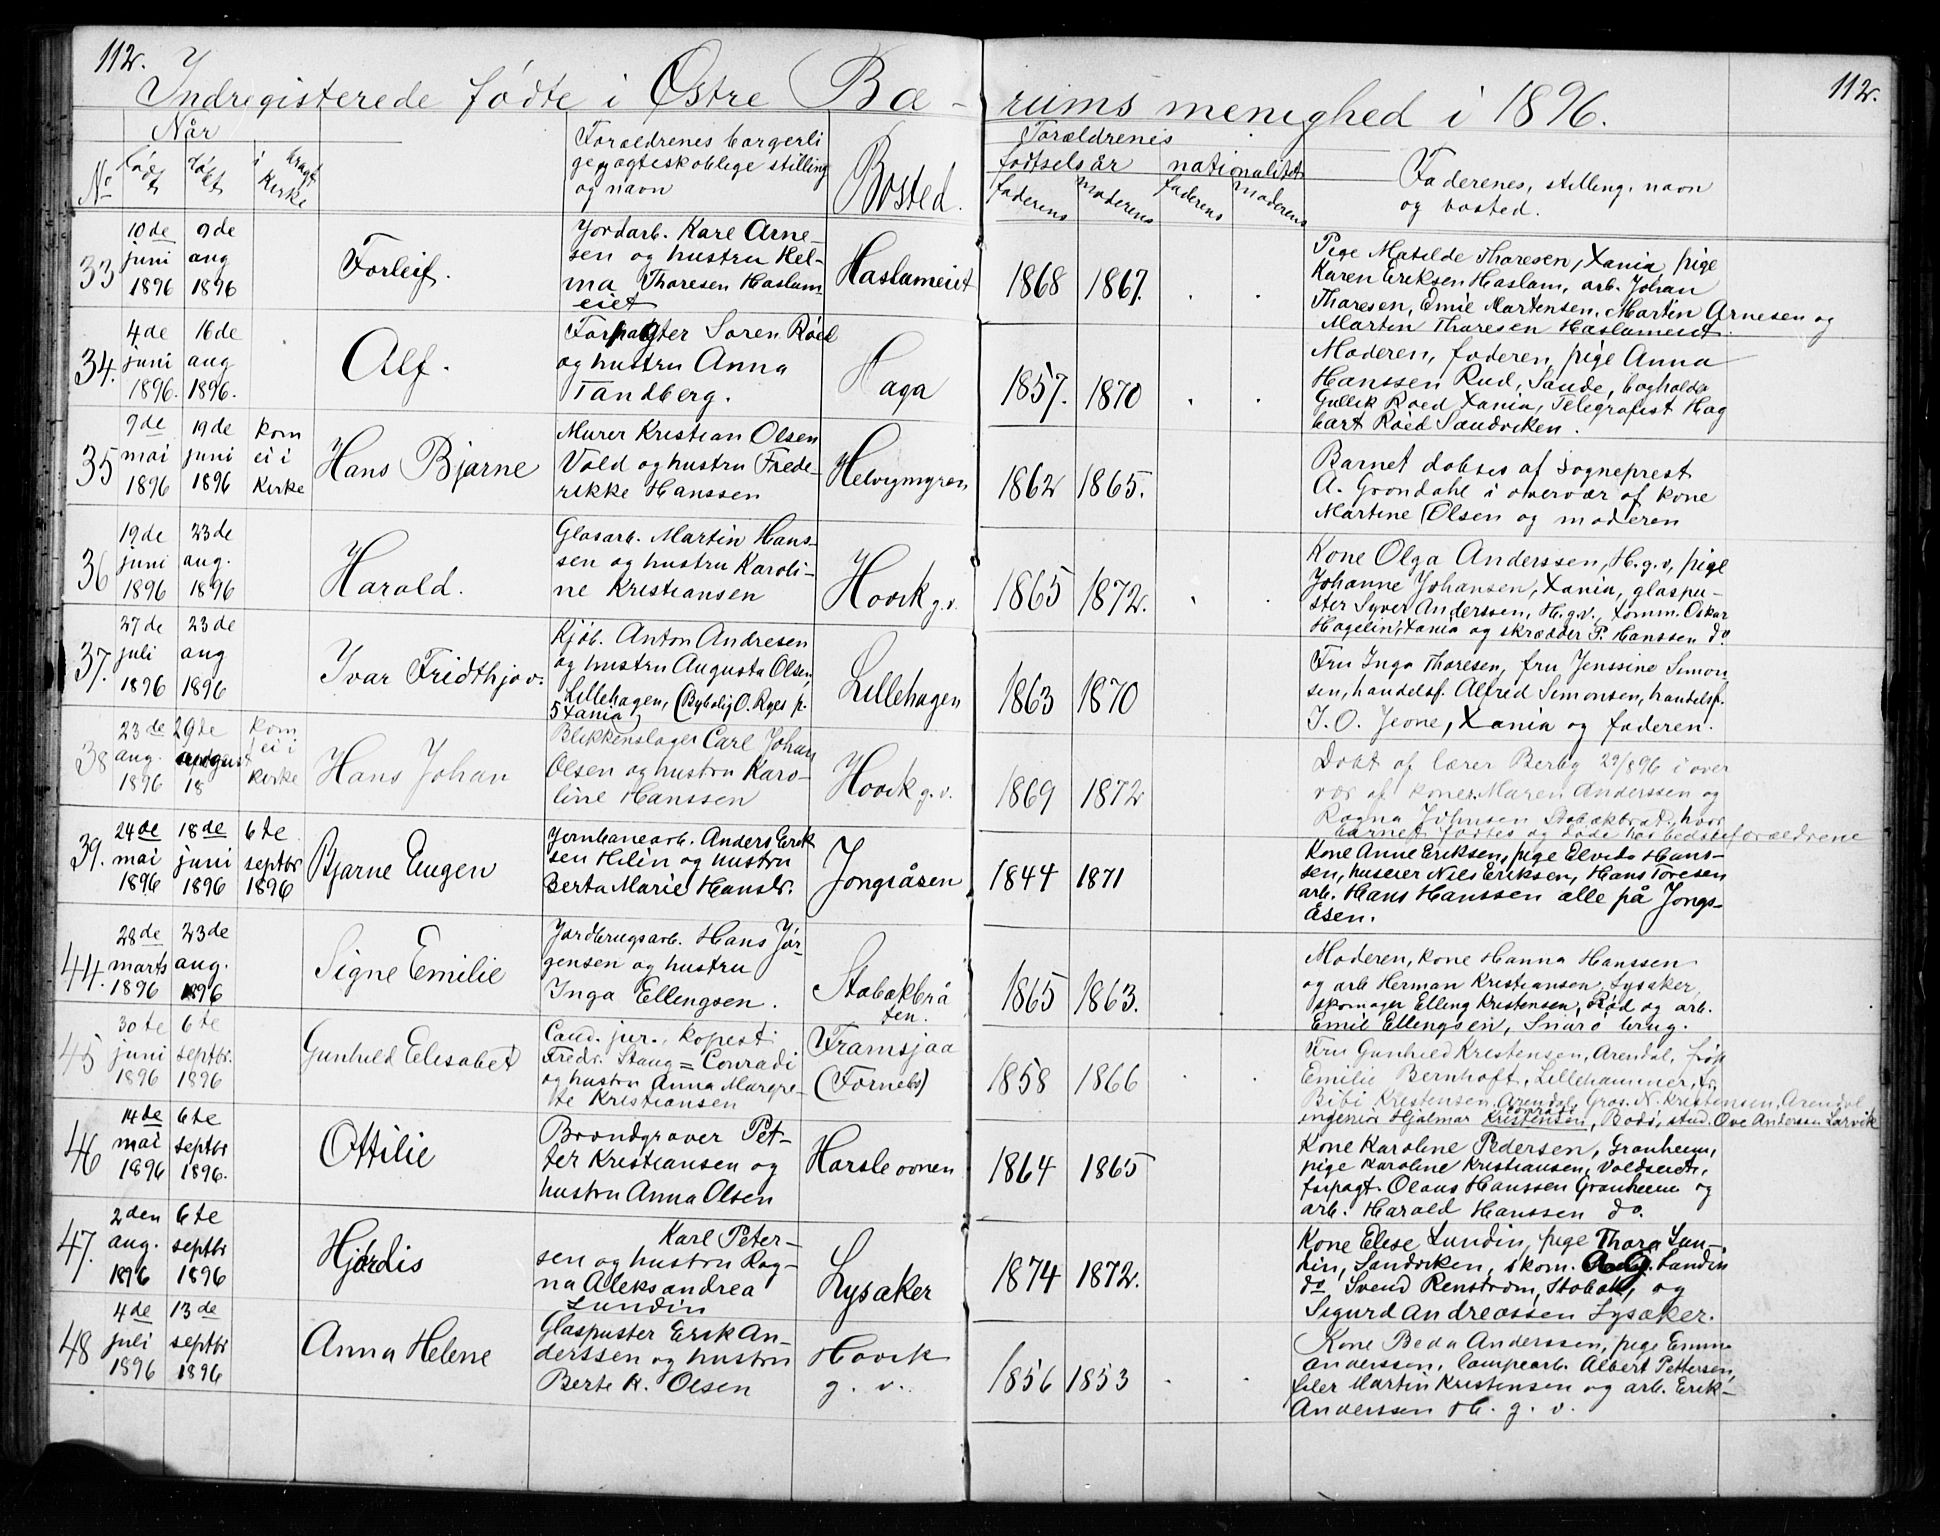 112. 112.
Indregisterede fødte i Østre Bæ- rums menighed i 1896.
Når
No født døbt i kirke bragt
Forældrenes borgerli
ge, ægteskablige stilling
og navn
Bosted.
Forældrenes
fødtselsår nationalitet
faderens moderens faderens moderens
Faderenes, stilling, navn
og bosted.
33 10de juni 1896 9de aug 1896
Torleif.
Jordarb. Karl Arne-
sen og hustru Hel-
ma Thoresen Haslum-
eiet
Haslumeiet
1868 1867. . .
Pige Matilde Thoresen, Xania, pige
Karen Eriksen Haslum, arb. Johan
Thoresen, Emil Martensen, Martin Arnesen og
Martin Thoresen Haslumeiet.
34. 4de juni 1896. 16de aug 1896.
Alf.
Forpagter Søren Røed
og hustru Anna
Tandberg.
Haga
1857. 1870 . .
Moderen, faderen, pige Anna
Hanssen Rud, Sande, bogholder
Gullik Røed Xania, Telegrafist Hag
bart Røed Sandviken.
35 9de mai 1896 19de juni 1896 kom ei i kirke
Hans Bjarne
Murer Kristian Olsen
Vold og hustru Frede-
rikke Hanssen
1862 1865.
Barnet døbtes af Sogneprest
A. Grøndahl i overvær af kone
Martine Olsen og moderen
36 19de juni 1896 23de aug. 1896
Harald.
Glasarb. Martin Hans-
sen og hustru Karoli-
ne Kristiansen
Høvik g.v.
1865 1872. . .
Kone Olga Anderssen, H.g.v, pige
Johanne Johansen, Xania, glaspu-
ster Syver Anderssen, H.g.v., tømm. Oskar
Hagelin, Xania og skrædder P. Hanssen do.
37. 27de juli 1896 23de aug 1896
Ivar Fridthjov.
Kjøb. Anton Andresen
og hustru Augusta Olsen,
Lillehagen, (Bybolig O. Ryes p.
5 Xania)
Lillehagen
1863 1870
Fru Inga Thoresen, fru Jenssine Simon
sen, handelsf. Alfred Simonsen, handelsf.
J. O. Jeone, Xania og faderen.
38 23de aug. 1896 29de august 18 kom ei i kirke
Hans Johan
Blikkenslager Carl Johan
Olsen og hustru Karo-
line Hanssen
Høvik g.v.
1869 1872
Døbt af lærer Berby 29/8 96 i over
vær af koner Maren Anderssen og
Ragna Johnsen Stabækbråt, hvor
barnet fødtes og døde hos bedsteforældrene
39. 24de mai 1896 18de juni 1896 6te septbr 1896
Bjarne Eugen
Jernbanearb. Anders Erik
sen Helin og hustru
Berta Marie Hansdr.
Jongsåsen
1844 1871
Kone Anne Eriksen, pige Elvida Hans-
sen, huseier Nils Eriksen, Hans Toresen
arb. Hans Hanssen alle på Jongs-
åsen.
44. 28de marts 1896 23de aug. 1896
Signe Emilie
Jordbrugsarb. Hans Jør-
gensen og hustru
Inga Ellengsen.
Stabækbrå
ten.
1865 1863.
Moderen, kone Hanna Hanssen
og arb Herman Kristiansen, Lysaker,
skomager Elling Kristensen, Rød og arb.
Emil Ellengsen, Snarø brug.
45 30te juni 1896 6te septbr. 1896
Gunhild Elisabet
Cand. jur., kopist
Fredr. Stang = Conradi
og hustru Anna Margre-
te Kristiansen
Framsjaa
(Fornebo)
1858 1866 . .
Fru Gunhild Kristensen, Arendal, frøk
Emilie Bernhoft, Lillehammer, fr.
Bibi Kristensen, Arendal, Gros. N. Kristensen, Arendal
Conradi
ingeniør Hjalmar Kristensen, Bodø, stud. Ove Anderssen Larvik
46 14de mai 1896 6te septbr 1896.
Ottilie
Brøndgraver Pet-
ter Kristiansen og
hustru Anna Olsen
Harsleovnen
1864 1865
Kone Karoline Pedersen, Granheim,
pige Karoline Kristiansen, Voldseiet,
forpagt. Olaus Hanssen Granheim og
arb. Harald Hanssen do.
47. 2den aug. 1896 6te septbr 1896
Hjørdis
Karl Peter-
sen og hustru Rag-
na Aleksandrea
Lundin
Lysaker
1874 1872.
Kone Elise Lundin, pige Thora Lun-
din, Sandviken, skom. Aug. Lundin
do, Svend Renstrøm, Stabæk, og
Sigurd Andreassen Lysaker.
48 4de juli 1896 13de septbr 1896
Anna Helene
Glaspuster Erik An-
derssen og hustru
Berte K. Olsen
Høvik
g. v.
1856 1853 . .
Kone Beda Anderssen, pige Emma
Anderssen, lampearb. Albert Pettersen,
filer Martin Kristensen og arb. Erik
Anderssen H. g. v.